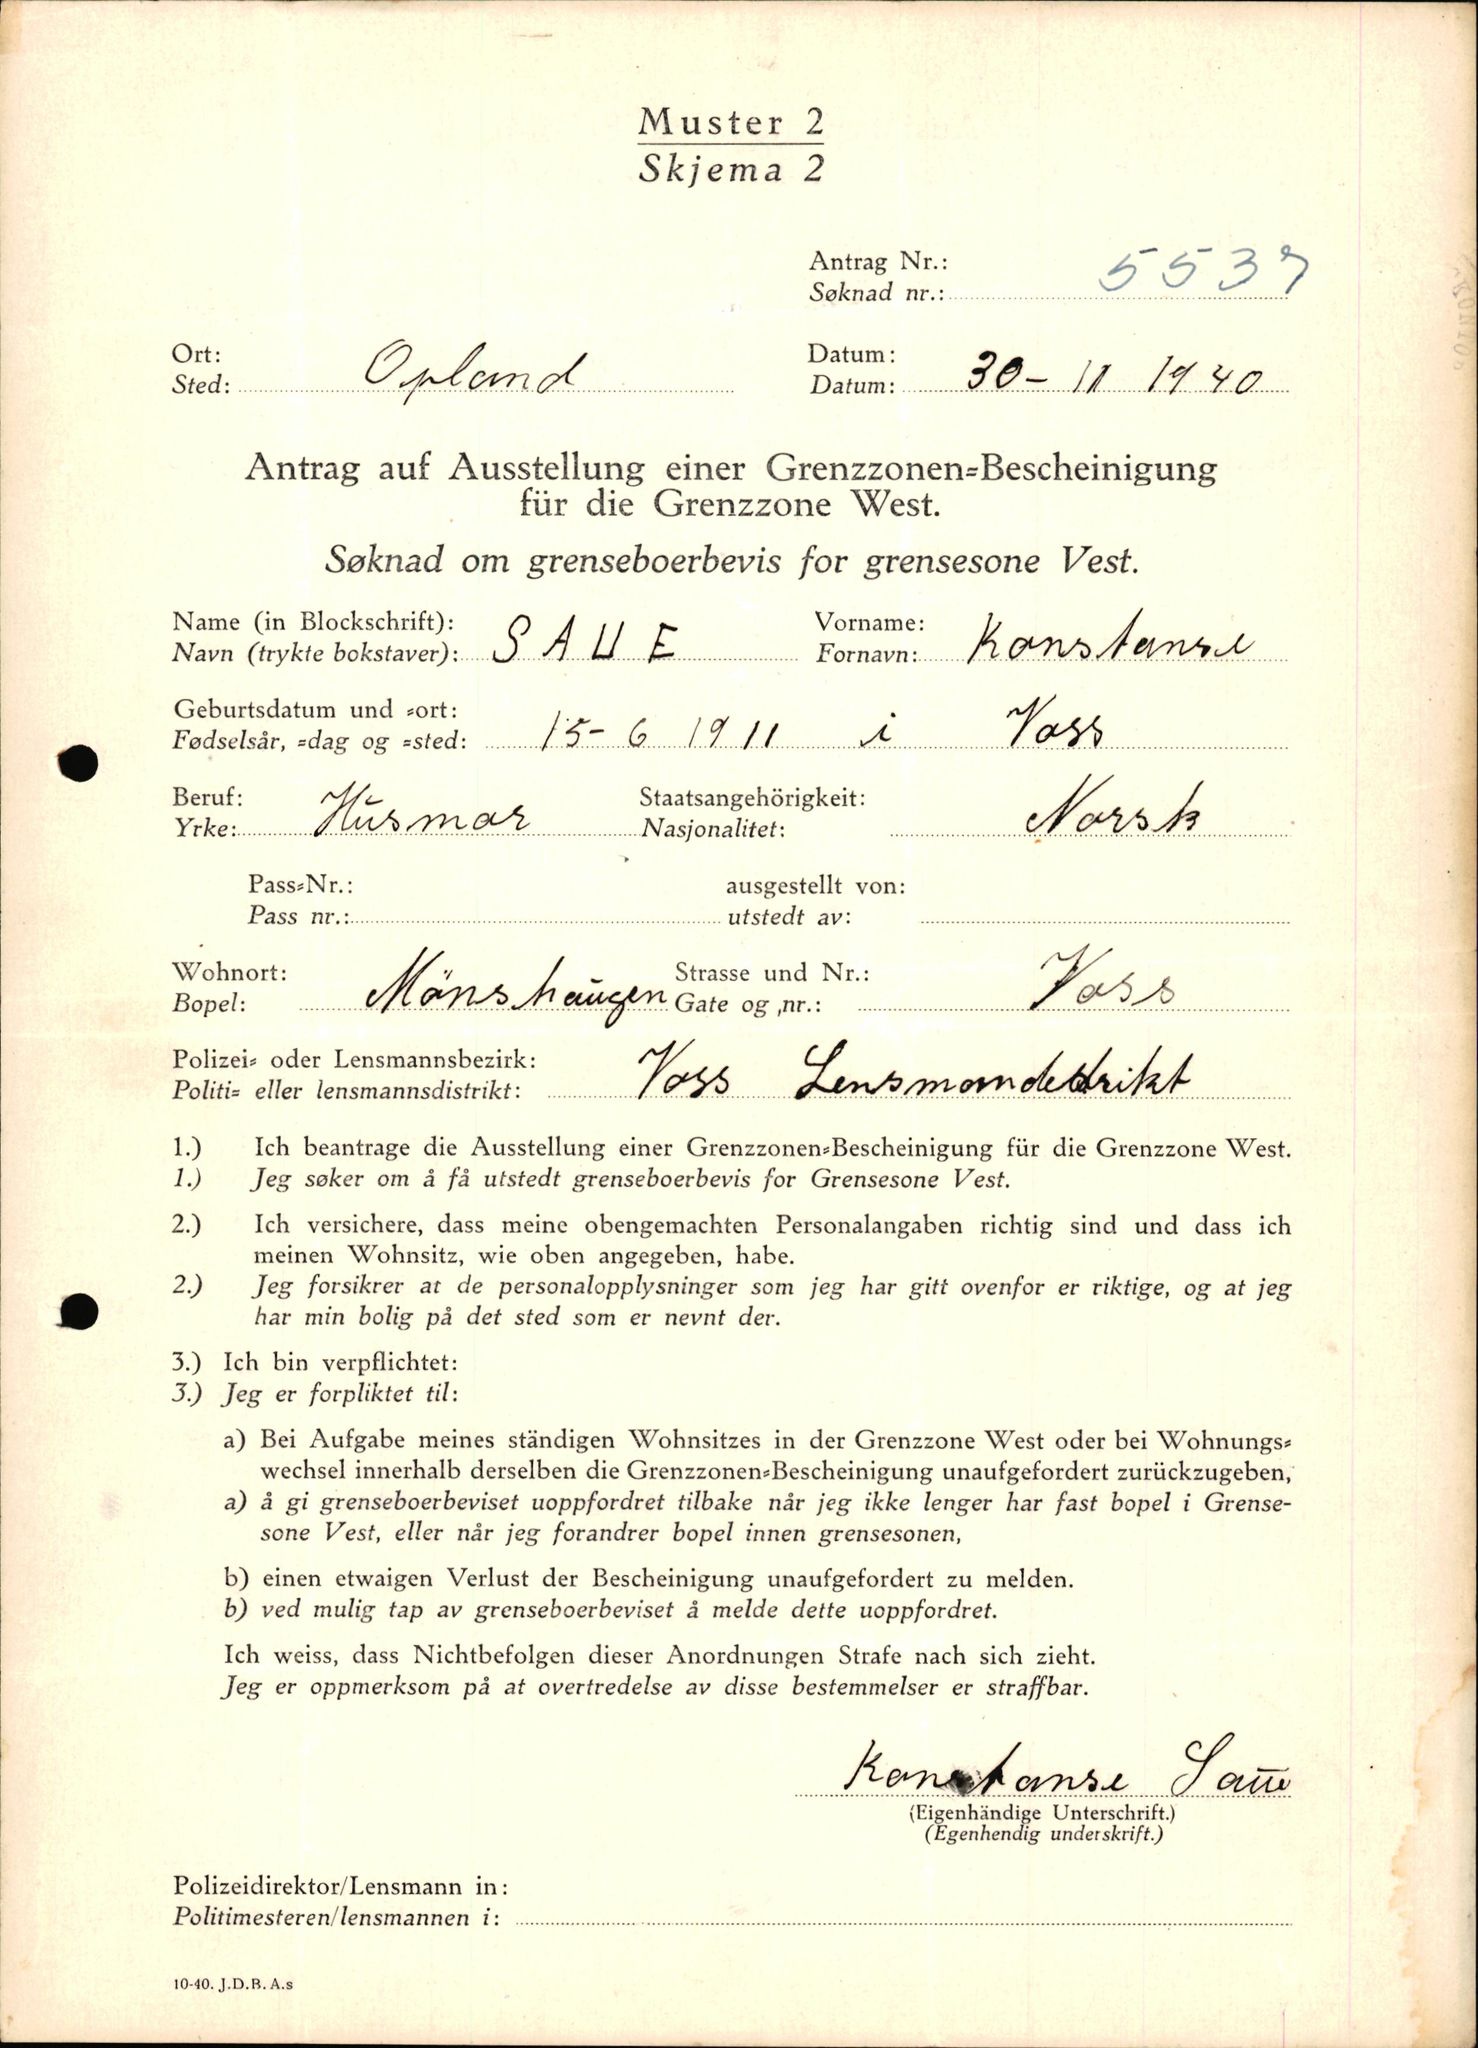 Muster 2
Skjema 2
Antrag Nr.:
Søknad nr.: 5537
Ort:
Sted: Opland
Datum:
Datum: 30-11 1940
Antrag auf Ausstellung einer Grenzzonen=Bescheinigung
für die Grenzzone West.
Søknad om grenseboerbevis for grensesone Vest.
Name (in Blockschrift):
Navn (trykte bokstaver): SAUE
Vorname:
Fornavn: Konstanse
Geburtsdatum und =ort:
Fødselsår, =dag og =sted: 15-6 1911 i Voss
Beruf:
Yrke: Husmor
Staatsangehörigkeit:
Nasjonalitet: Norsk
Pass=Nr.:
Pass nr.:
ausgestellt von:
utstedt av:
Wohnort:
Bopel: Mönshaugen
Strasse und Nr.:
Gate og nr.: Voss
Polizei= oder Lensmannsbezirk:
Politi= eller lensmannsdistrikt: Voss Lensmandedrikt
1.) Ich beantrage die Ausstellung einer Grenzzonen=Bescheinigung für die Grenzzone West.
1.) Jeg søker om å få utstedt grenseboerbevis for Grensesone Vest.
2.) Ich versichere, dass meine obengemachten Personalangaben richtig sind und dass ich
meinen Wohnsitz, wie oben angegeben, habe.
2.) Jeg forsikrer at de personalopplysninger som jeg har gitt ovenfor er riktige, og at jeg
har min bolig på det sted som er nevnt der.
3.) Ich bin verpflichtet:
3.) Jeg er forpliktet til:
a) Bei Aufgabe meines ständigen Wohnsitzes in der Grenzzone West oder bei Wohnungs=
wechsel innerhalb derselben die Grenzzonen=Bescheinigung unaufgefordert zurückzugeben,
a) å gi grenseboerbeviset uoppfordret tilbake når jeg ikke lenger har fast bopel i Grense-
sone Vest, eller når jeg forandrer bopel innen grensesonen,
b) einen etwaigen Verlust der Bescheinigung unaufgefordert zu melden.
b) ved mulig tap av grenseboerbeviset å melde dette uoppfordret.
Ich weiss, dass Nichtbefolgen dieser Anordnungen Strafe nach sich zieht.
Jeg er oppmerksom på at overtredelse av disse bestemmelser er straffbar.
Konstanse Saue
(Eigenhändige Unterschrift.)
(Egenhendig underskrift.)
Polizeidirektor/Lensmann in:
Politimesteren/lensmannen i:
10-40. J.D.B. A.s